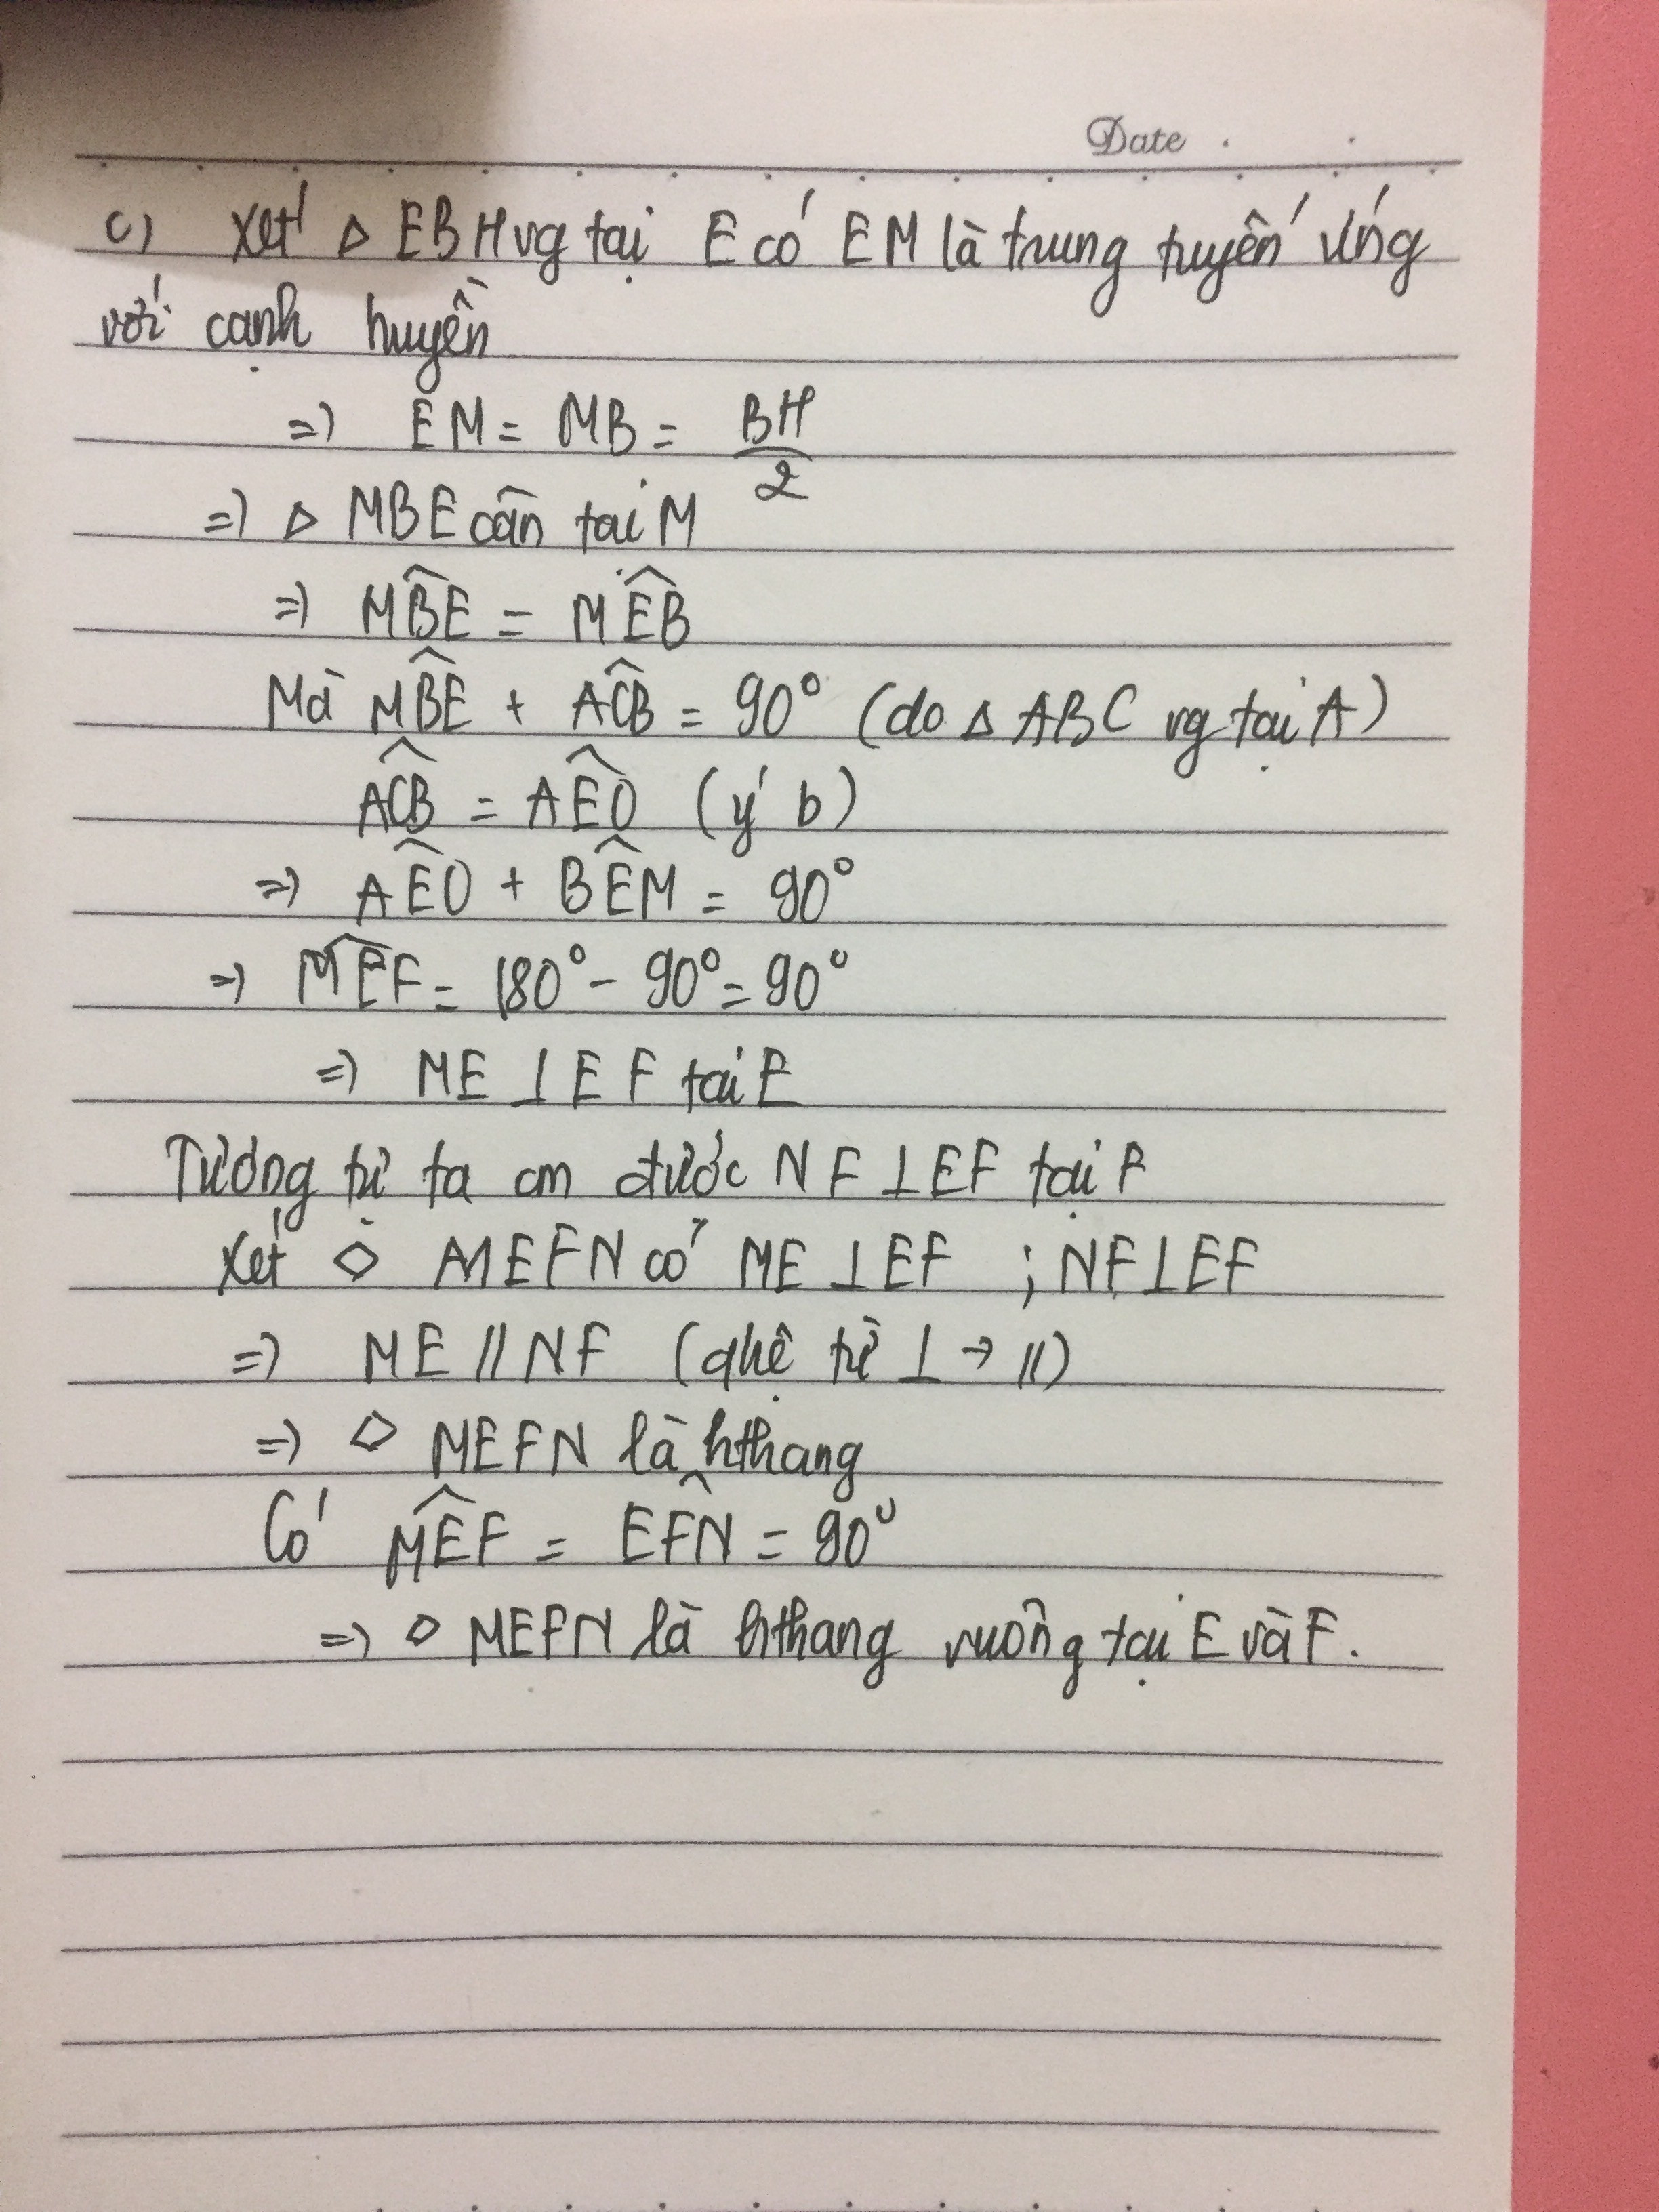 Date
c) Xét △ EBH vg tại E có EM là trung tuyến ứng
với cạnh huyền
=> EM = MB = BH/2
=> △ MBE cân tại M
=> MB̂E = MÊB
Mà MB̂E + AĈB = 90° (do △ ABC vg tại A)
AĈB = AÊO (ý b)
=> AÊO + BÊM = 90°
=> MÊF = 180° - 90° = 90°
=> ME ⊥ EF tại E
Tương tự ta cm được NF ⊥ EF tại F
Xét ◇ MEFN có ME ⊥ EF ; NF ⊥ EF
=> ME // NF (qhệ từ ⊥ → //)
=> ◇ MEFN là hthang
Có MÊF = EF̂N = 90°
=> ◇ MEFN là hthang vuông tại E và F.